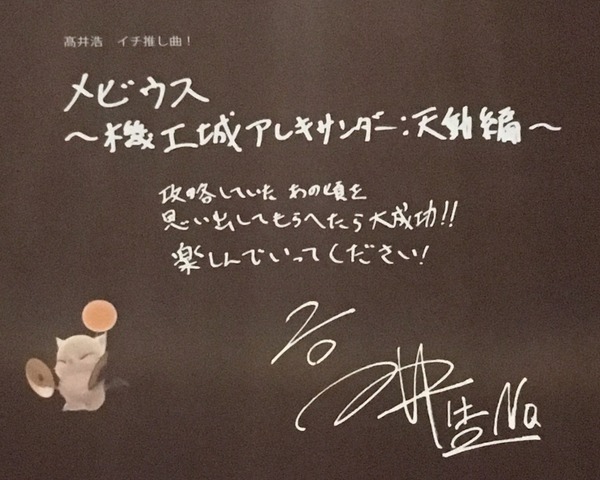 髙井浩 イチ推し曲！
メビウス
～機工城アレキサンダー:天動編～
攻略していた あの頃を
思い出してもらへたら大成功!!
楽しんでいってください!